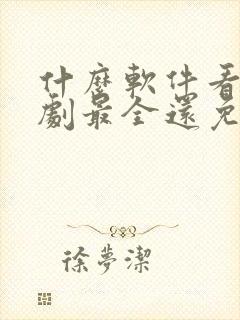 什麼軟件看
劇最全還免
徐夢潔